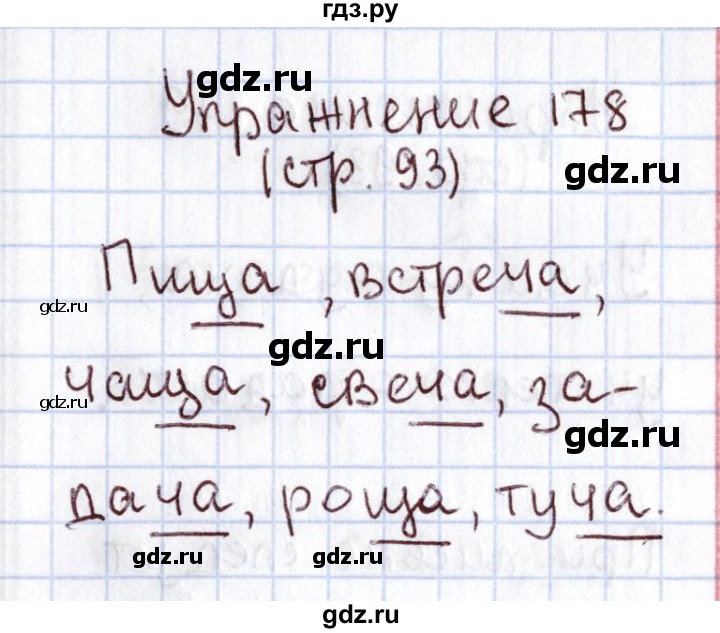 гдз.ру
gdz.ru
Упражнение 178
gdz.ru
(стр. 93)
Пища, встреча,
gdz.ru
gdz.ru
чаща, свеча, за-
gdz.ru
gdz.ru
дача, роща, туча.
gdz.ru gdz.ru
gdz.ru